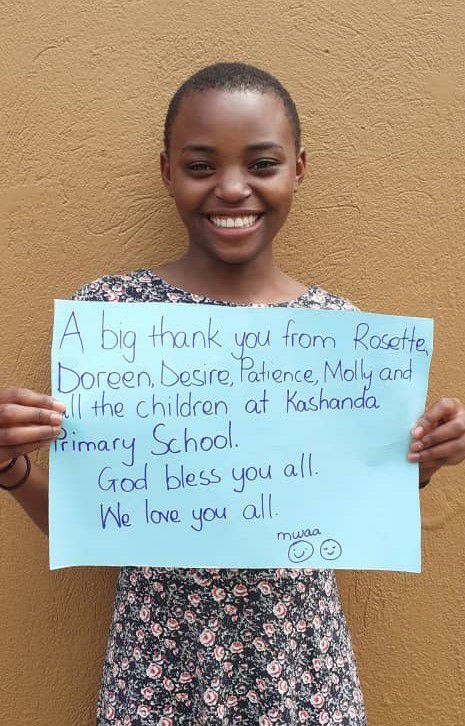 A big thank you from Rosette,
Doreen, Desire, Patience, Molly and
all the children at Kashanda
Primary School.
God bless you all.
We love you all.
mwaa